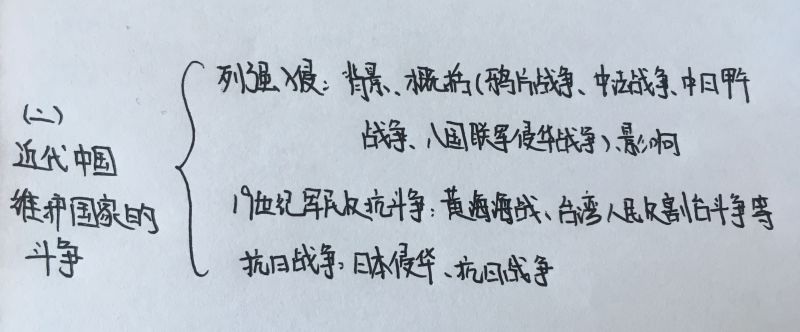 (二)
近代中国
维护国家的
斗争
列强入侵：背景、概括(鸦片战争、中法战争、中日甲午
战争、八国联军侵华战争)、影响
19世纪军民反抗斗争：黄海海战、台湾人民反割台斗争等
抗日战争：日本侵华、抗日战争